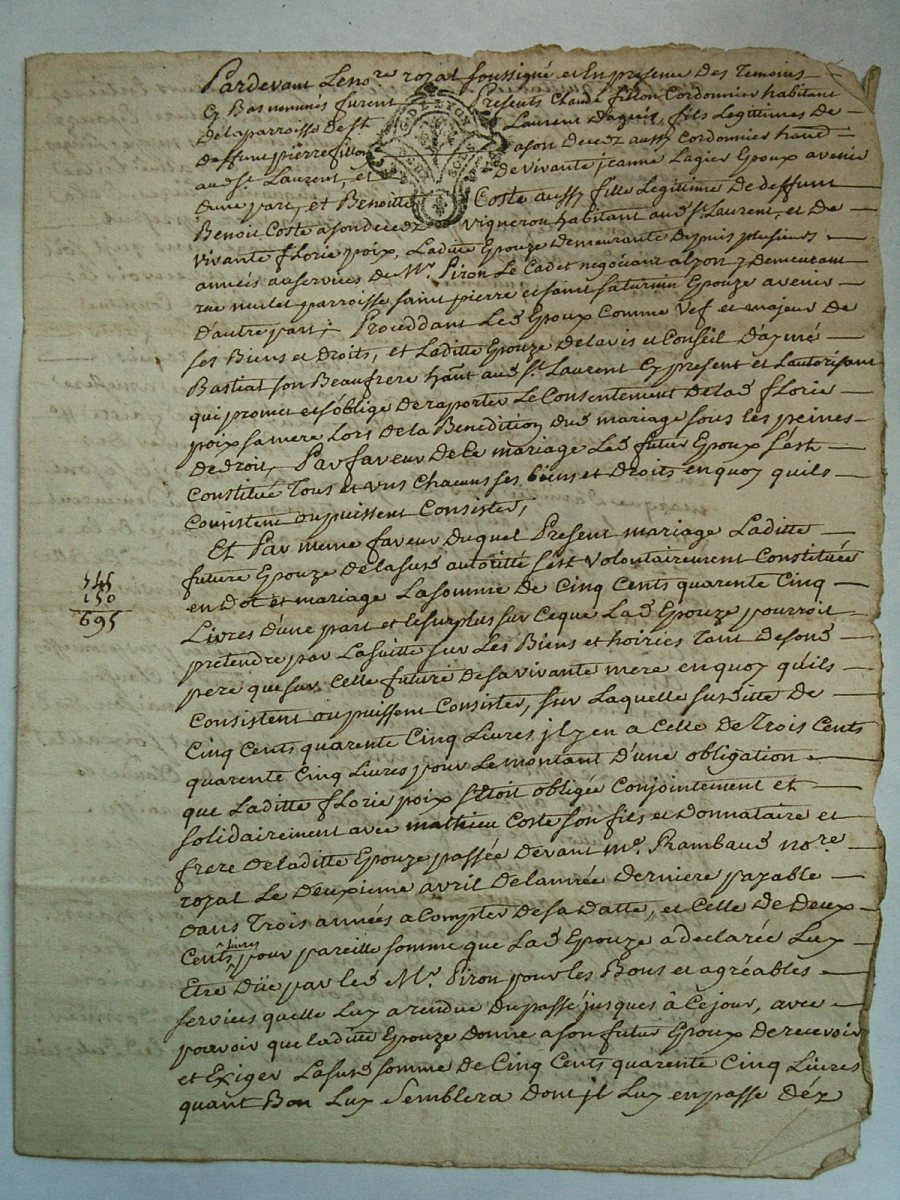 Pardevant Le no.re royal soussigné et En presence Des Temoins
Cy Bas nommés furent Presents Claude fillon Cordonnier habitant
De la parroisse de St Laurent Dagnis, fils Legittimes De
deffunt pierre fillon a son Decedz aussy Cordonnier hant
aud St. Laurent, et De vivante jeanne Lagier Epoux avenir
d'une part, et Benoitte Coste aussy fille Legitime De deffunt
Benoit Coste a son decedz Vigneron habitant aud St Laurent, et De
Vivante fLorie poix, Laditte Epouze demeurante Depuis plusieurs
années au service Du Mr. Piron Le Cadet negociant a Lyon y Demeurant
rue mulet parroisse saint pierre et saint saturnin Epouze avenir
D'autre part; Proceddant Led Epoux Comme Vef et majeur De
ses Biens et Droits, et Laditte Epouze De lavis et Conseil D'aymé
Bastiat son Beaufrere hant aud St. Laurent Cy present et Lautorisant
qui promet et s'oblige De raporter Le Consentement De lad fLorie
poix sa mere Lors de La Benediction Dud mariage sous les peines
De droit, Par faveur De Ce mariage Led futur Epoux s'est
Constitué Tous et uns Chacuns ses biens et Droits en quoy quils
Consistent ou puissent Consister;
Et Par meme faveur Duquel Present mariage Laditte
future Epouze De la susd autorité s'est Volontairement Constituée
en Dot et mariage La somme De Cinq Cents quarente Cinq
545
150
695
Livres D'une part et le surplus sur Ceque Lad Epouze pourroit
pretendre par La suitte sur Les Biens et hoiries Tant De sond
pere que sur Celle future De sa vivante mere en quoy quils
Consistent ou puissent Consister, sur Laquelle susditte De
Cinq Cents quarente Cinq Livres jl y en a Celle De Trois Cents
quarente Cinq Livres pour Le montant D'une obligation
que Laditte fLorie poix s'Etoit obligée Conjointement et
solidairement avec mathieu Coste son fils et Donnataire et
frere De laditte Epouze passée Devant me. Rambaud no.re
royal Le Deuxieme avril De lannée Derniere payable
dans Trois années a Compter De sa Datte, et Celle De Deux
Cents Livres pour pareille somme que Lad Epouze a declarée Luy
Etre Düe par led Mr. Piron pour les Bons et agréables
services quelle Luy a rendue Du passé jusques à Ce jour, avec
pouvoir que laditte Epouze Donne a son futur Epoux De recevoir
et Exiger La susd somme De Cinq Cents quarente Cinq Livres
quant Bon Luy Semblera Dont jl Luy en passe Déz